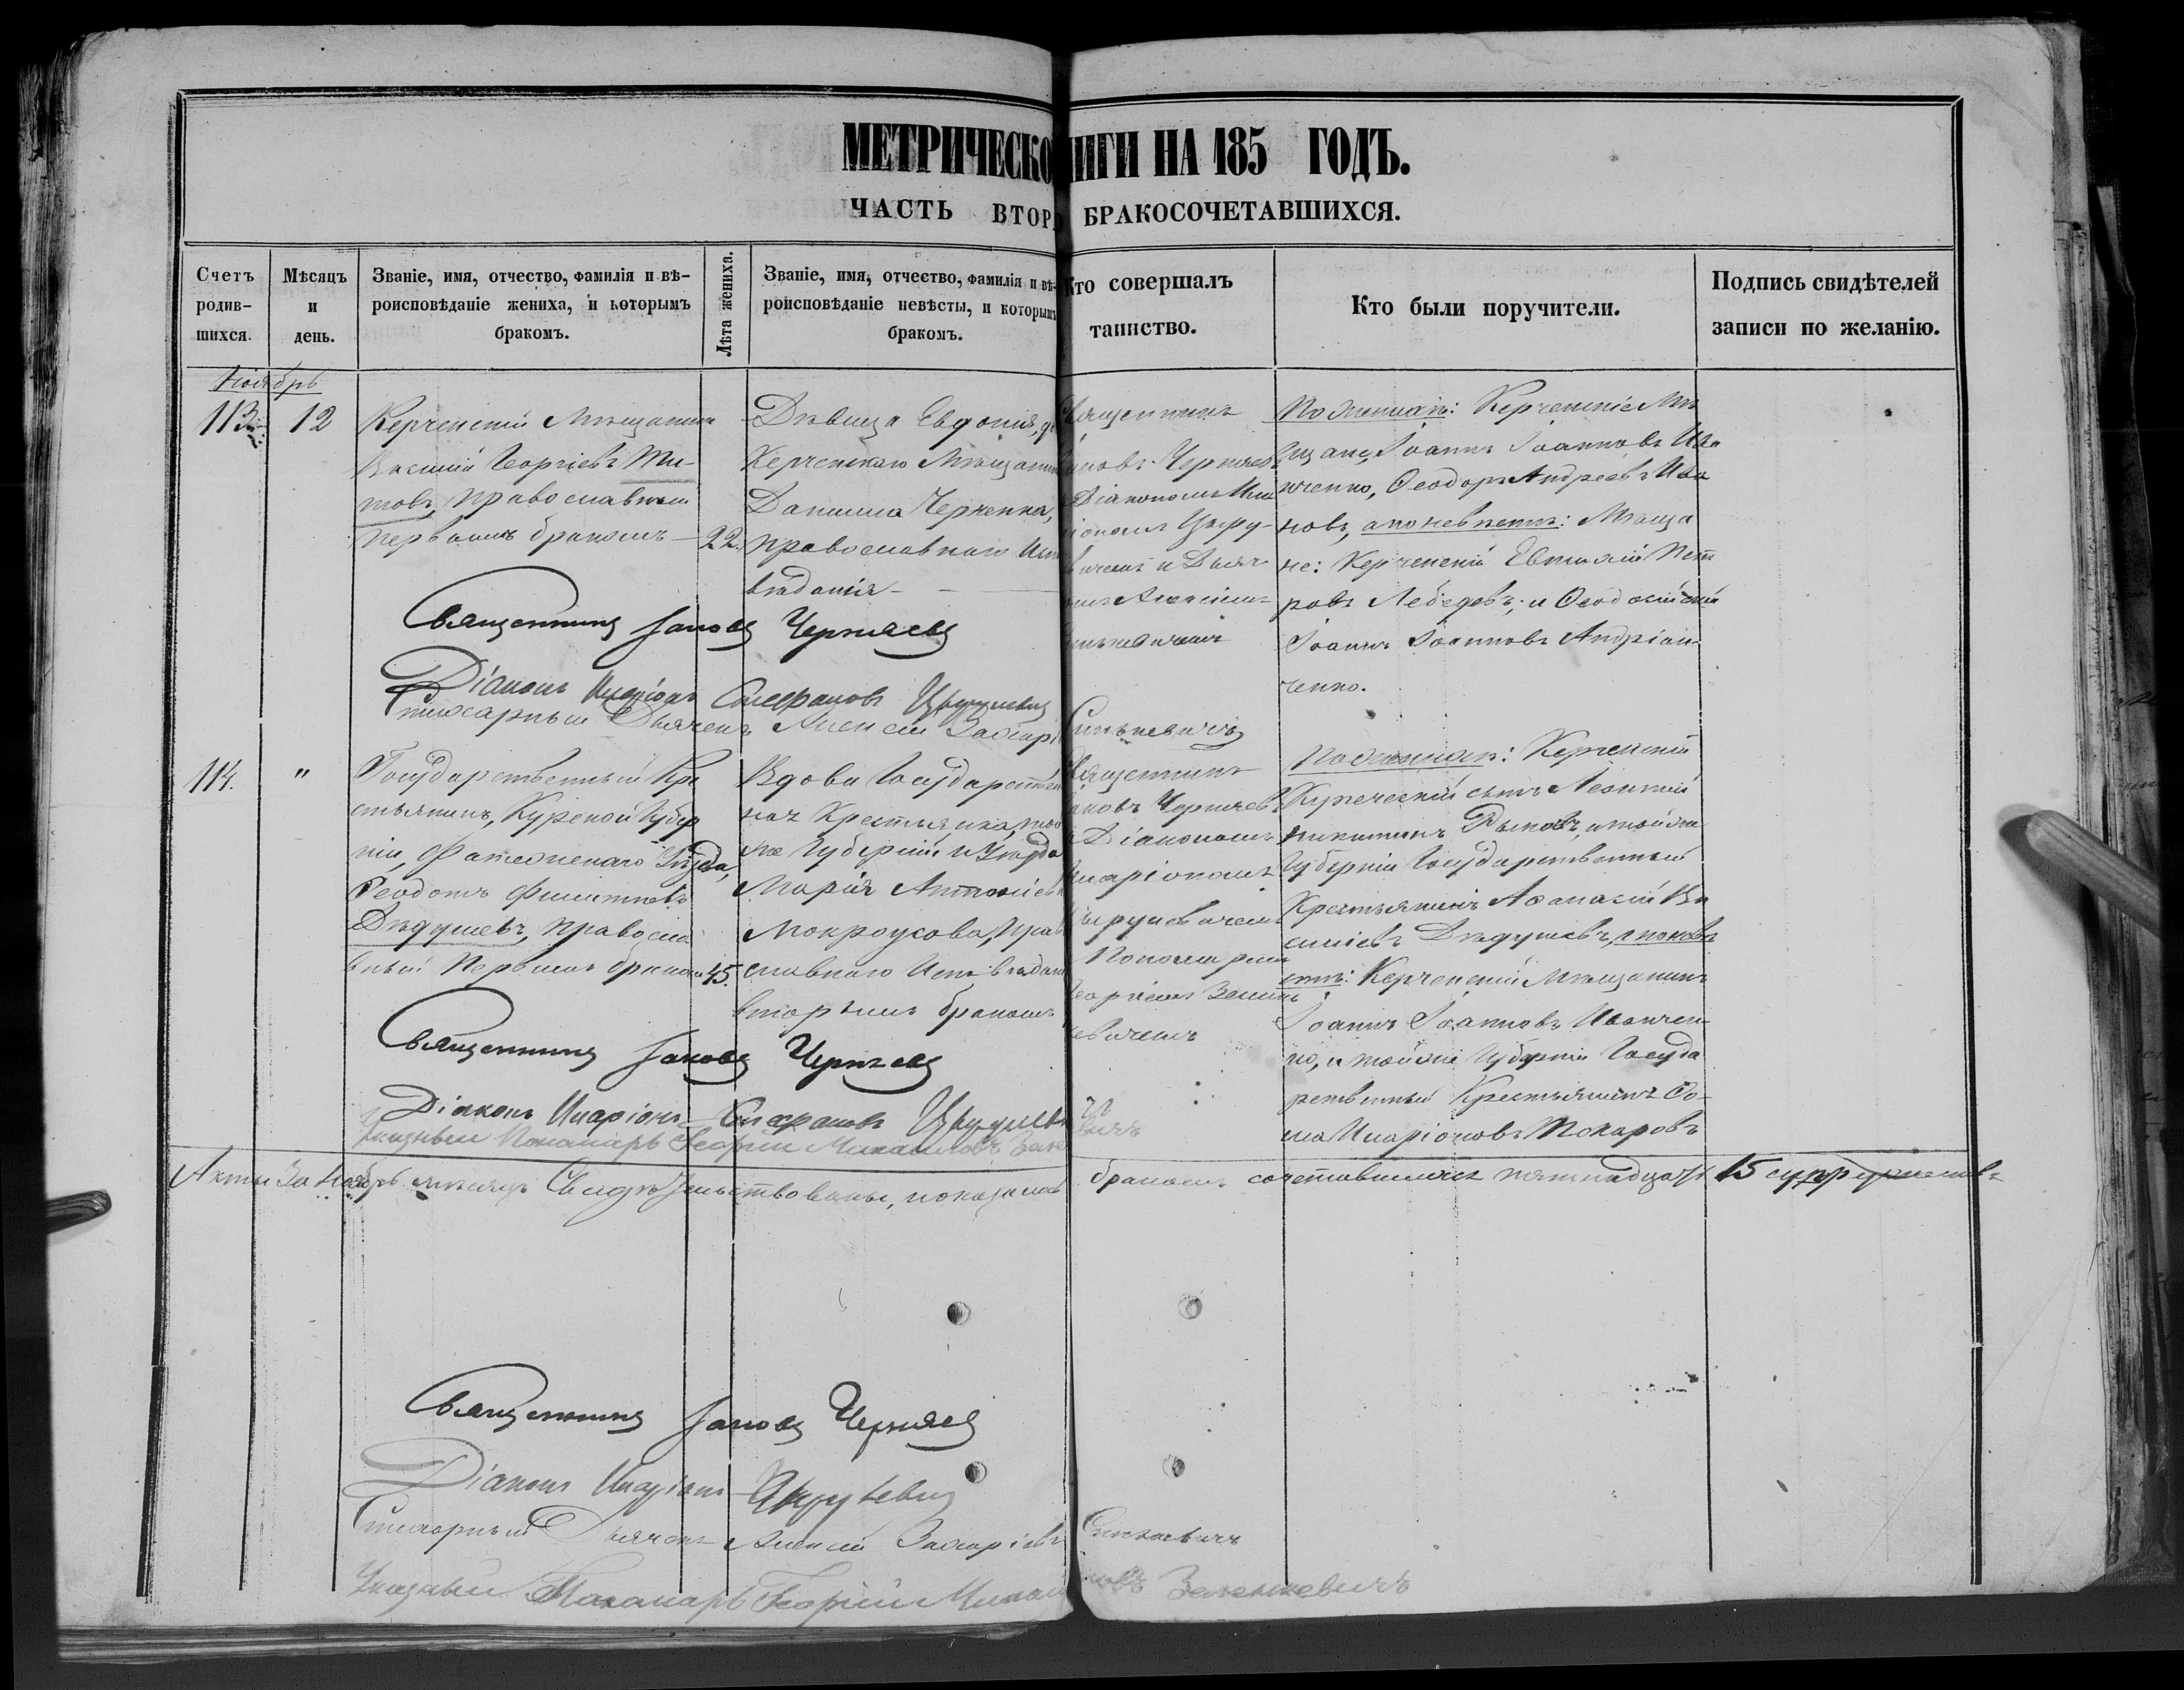 МЕТРИЧЕСКО ИГИ НА 185 ГОДЪ.
ЧАСТЬ ВТОР БРАКОСОЧЕТАВШИХСЯ.
Счетъ родив-шихся.
Мѣсяцъ и день.
Званіе, имя, отчество, фамилія и вѣ-
роисповѣданіе жениха, и которымъ
бракомъ.
Лѣта жениха.
Званіе, имя, отчество, фамилія и вѣ-
роисповѣданіе невѣсты, и которымъ
бракомъ.
Кто совершалъ
таинство.
Кто были поручители.
Подпись свидѣтелей
записи по желанію.
Ноябрь
113. 12
Керченскій Мѣщанинъ
Василій Георгіевъ Ти-
товъ, православный
первымъ бракомъ 22.
Дѣвица Евдокія, до
Керченскаго Мѣщанин
Даніила Черненка,
православнаго Испо
вѣданія
Священникъ
аковъ Черняевъ
Діакономъ Ила
ріономъ Цыру-
вичемъ и Дьяч
омъ Алексіемъ
инькевичемъ
По женихѣ: Керченскіе Мѣ
щане, Іоаннъ Іоанновъ Ива
нченко, Ѳеодоръ Андреевъ Ива
новъ, а по невѣстѣ: Мѣща
не: Керченскій Евтихій Пет
ровъ Лебедевъ, и Ѳеодосійскій
Іоаннъ Іоанновъ Андріан-
ченко.
Священникъ Іаковъ Черняевъ
Діаконъ Иларіонъ Стефановъ
Дьячекъ Алексій Захарі Синькевичъ
114. "
Государственный Кре
стьянинъ, Курской Губер
ніи, Фатежскаго Уѣзда,
Ѳеодотъ Филиповъ
Дѣдушевъ, правосла
вный первымъ бракомъ 45.
Вдова Государствен
ная Крестьянка, той
же Губерніи и Уѣзда
Марія Антоніева
Мокроусова, Прав
славнаго Исповѣдані
вторымъ бракомъ
Священникъ
аковъ Черняевъ
Діакономъ
Иларіономъ
Цыруле вичемъ
Пономаремъ
Георгіемъ Зелинь
кевичемъ
По женихѣ: Керченскій
Купеческій сынъ Леонтій
Никитинъ Рыковъ, и той же
Губерніи Государственный
Крестьянинъ Аѳанасій Ва
силіевъ Дѣдушевъ, а по невѣ
стѣ: Керченскій Мѣщанинъ
Іоаннъ Іоанновъ Иванчен-
ко, и той же Губерніи Госуда
рственный Крестьянинъ Ѳо-
ма Иларіоновъ Токаровъ
Священникъ Іаковъ Черняевъ
Діаконъ Иларіонъ Стефановъ
Указный Пономарь Георгій Михаиловъ
Акты за Ноябрь мѣсяцъ Свидѣтельствованы, показанъ бракомъ сочетавшихся пятнадцать 15 супружествъ
Священникъ Іаковъ Черняевъ
Діаконъ Иларіонъ
Дьячекъ Алексій Захаріевъ Синькевичъ
Указный Пономарь Георгій Михаи ловъ Зеленкевичъ